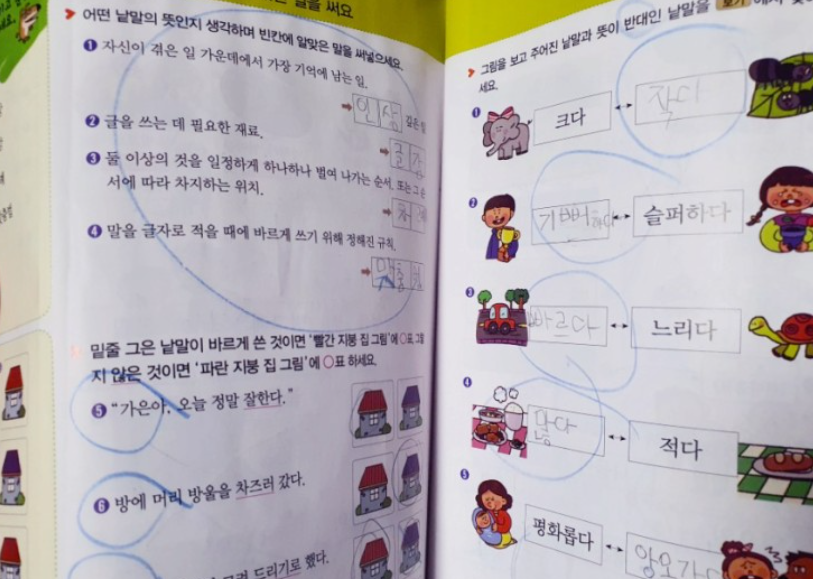 말을 써요
어떤 낱말의 뜻인지 생각하며 빈칸에 알맞은 말을 써넣으세요.
❶ 자신이 겪은 일 가운데에서 가장 기억에 남는 일.
인상 깊은 일
❷ 글을 쓰는 데 필요한 재료.
글감
❸ 둘 이상의 것을 일정하게 하나하나 벌여 나가는 순서. 또는 그 순
서에 따라 차지하는 위치.
차례
❹ 말을 글자로 적을 때에 바르게 쓰기 위해 정해진 규칙.
맞춤법
밑줄 그은 낱말이 바르게 쓴 것이면 '빨간 지붕 집 그림'에 ○표, 그렇
지 않은 것이면 '파란 지붕 집 그림'에 ○표 하세요.
❺ "가은아, 오늘 정말 잘한다."
❻ 방에 머리 방울을 차즈러 갔다.
드리기로 했다.
그림을 보고 주어진 낱말과 뜻이 반대인 낱말을 보기 에서
세요.
❶ 크다 작다
❷ 기뻐하다 슬퍼하다
❸ 빠르다 느리다
❹ 많다 적다
❺ 평화롭다